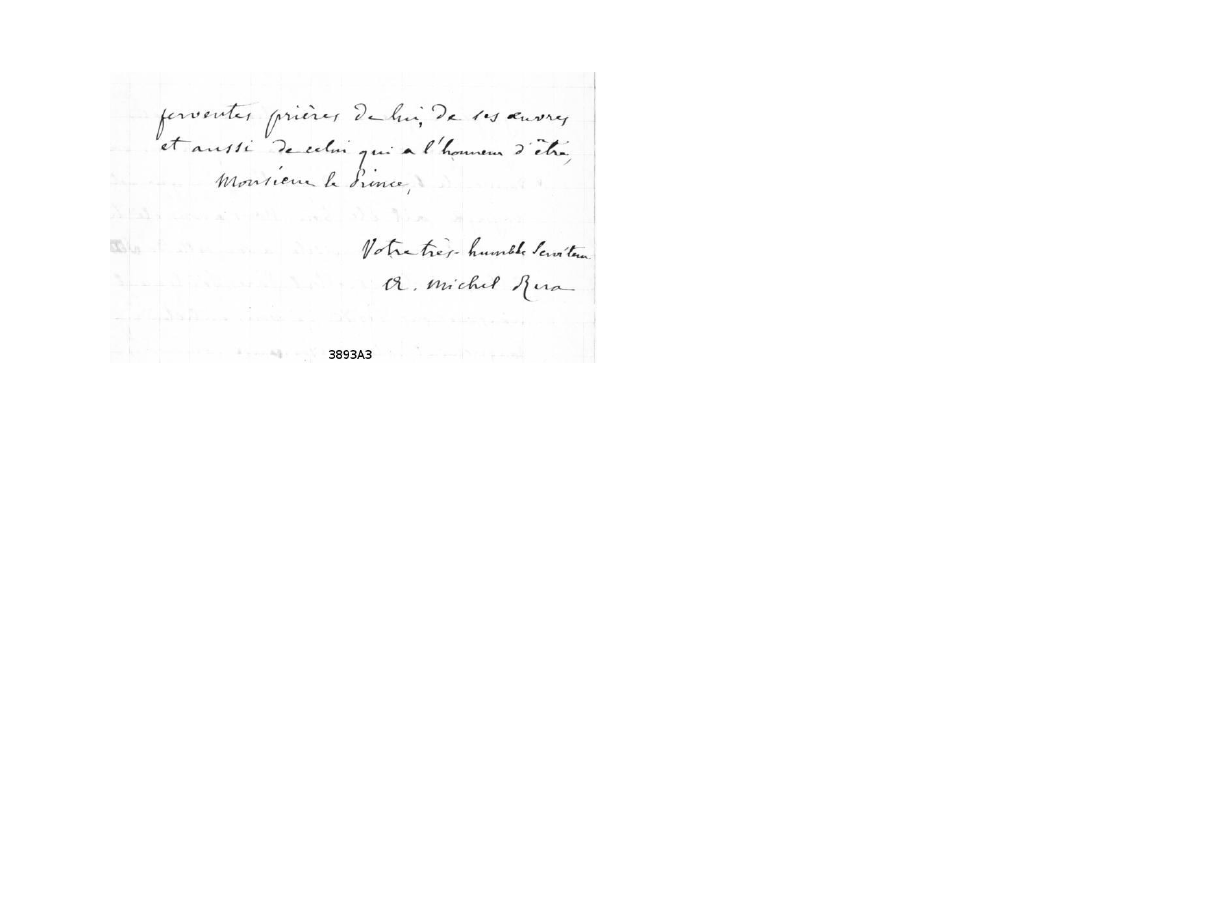 ferventes prières de lui, de ses œuvres
et aussi de celui qui a l'honneur d'être,
Monsieur le Prince,
Votre très-humble Serviteur
D. Michel Rua
3893A3